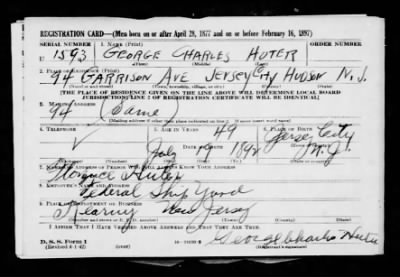 REGISTRATION CARD—(Men born on or after April 28, 1877 and on or before February 16, 1897)
SERIAL NUMBER 1. NAME (Print) ORDER NUMBER
U 1593 GEORGE CHARLES HUTER
(First) (Middle) (Last)
2. PLACE OF RESIDENCE (Print)
94 GARRISON AVE JERSEY CITY HUDSON N.J.
(Number and street) (Town, township, village, or city) (County) (State)
[THE PLACE OF RESIDENCE GIVEN ON THE LINE ABOVE WILL DETERMINE LOCAL BOARD
JURISDICTION; LINE 2 OF REGISTRATION CERTIFICATE WILL BE IDENTICAL]
3. MAILING ADDRESS
94 Same
[Mailing address if other than place indicated on line 2. If same insert word same]
4. TELEPHONE 5. AGE IN YEARS 6. PLACE OF BIRTH
49 Jersey City
DATE OF BIRTH
July 1892 N.J.
7. NAME AND ADDRESS OF PERSON WHO WILL ALWAYS KNOW YOUR ADDRESS
Florence Huter
8. EMPLOYER'S NAME AND ADDRESS
Federal Ship Yard
9. PLACE OF EMPLOYMENT OR BUSINESS
Kearny New Jersey
I AFFIRM THAT I HAVE VERIFIED ABOVE ANSWERS AND THAT THEY ARE TRUE.
D. S. S. Form 1
(Revised 4-1-42)
George Charles Huter